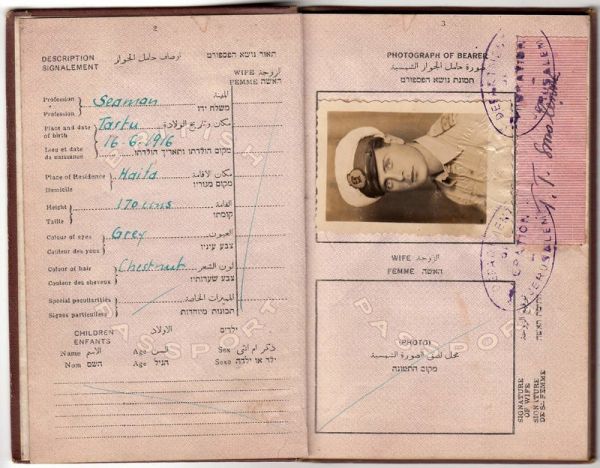 2
DESCRIPTION
SIGNALEMENT
اوصاف حامل الجواز
תאור נושא הפספורט
WIFE الزوجة
FEMME האשה
Profession
Profession
Seaman
المهنة
משלח ידו
Place and date
of birth
Lieu et date
de naissance
Tartu
16-6-1916
مكان وتاريخ الولادة
מקום הולדתו ותאריך הולדתו
Place of Residence
Domicile
Haifa
مكان الاقامة
מקום מגוריו
Height
Taille
170 cms
القامة
קומתו
Colour of eyes
Couleur des yeux
Grey
العيون
צבע עיניו
Colour of hair
Couleur des cheveux
Chestnut
لون الشعر
צבע שערותיו
Special peculiarities
Signes particuliers
المميزات الخاصة
תכונות מיוחדות
BRITISH
PASSPORT
CHILDREN
ENFANTS
الاولاد
ילדים
Name الاسم Age السن Sex ذكر ام انثى
Nom השם Age הגיל Sexe ילד או ילדה
3
PHOTOGRAPH OF BEARER
صورة حامل الجواز الشمسية
תמונת נושא הפספורט
WIFE الزوجة
FEMME האשה
PASSPORT
(PHOTO)
محل لصق الصورة الشمسية
מקום התמונה
SIGNATURE
OF WIFE
SIGNATURE
DE S- FEMME
JERUSALEM